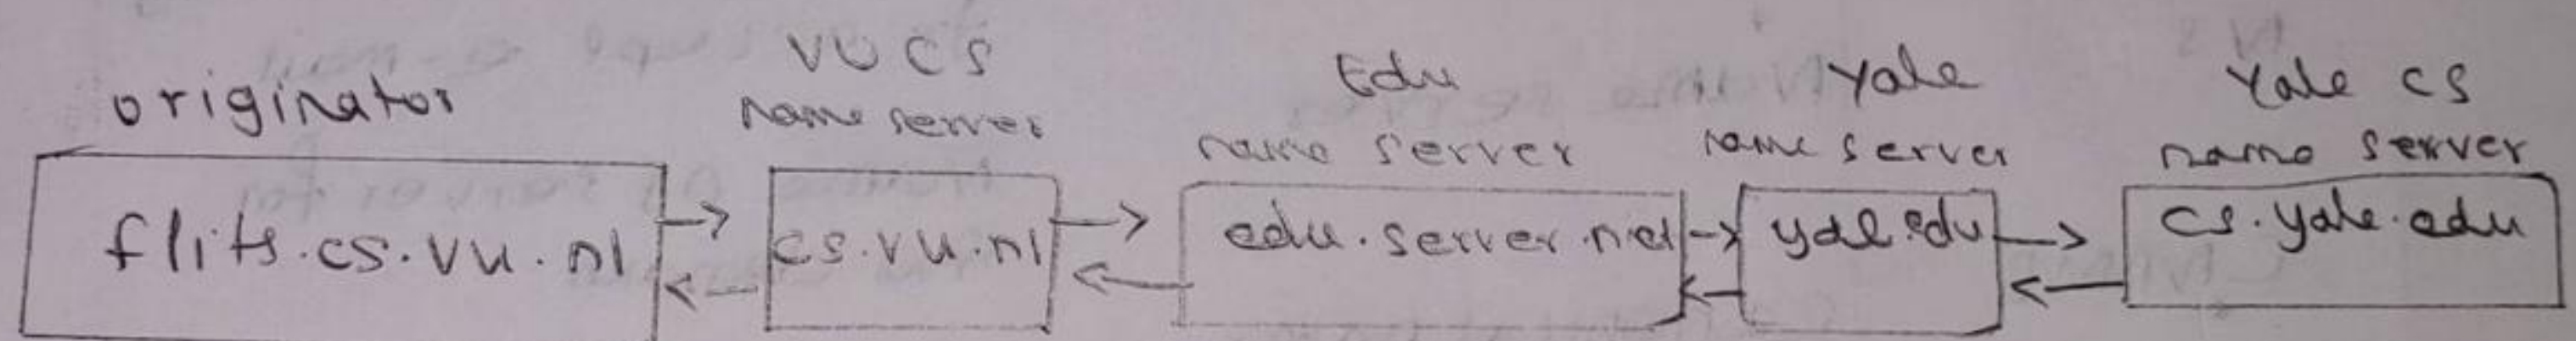 originator
VU CS
name server
Edu
name server
Yale
name server
Yale CS
name server
flits.cs.vu.nl
cs.vu.nl
edu.server.net
yale.edu
cs.yale.edu